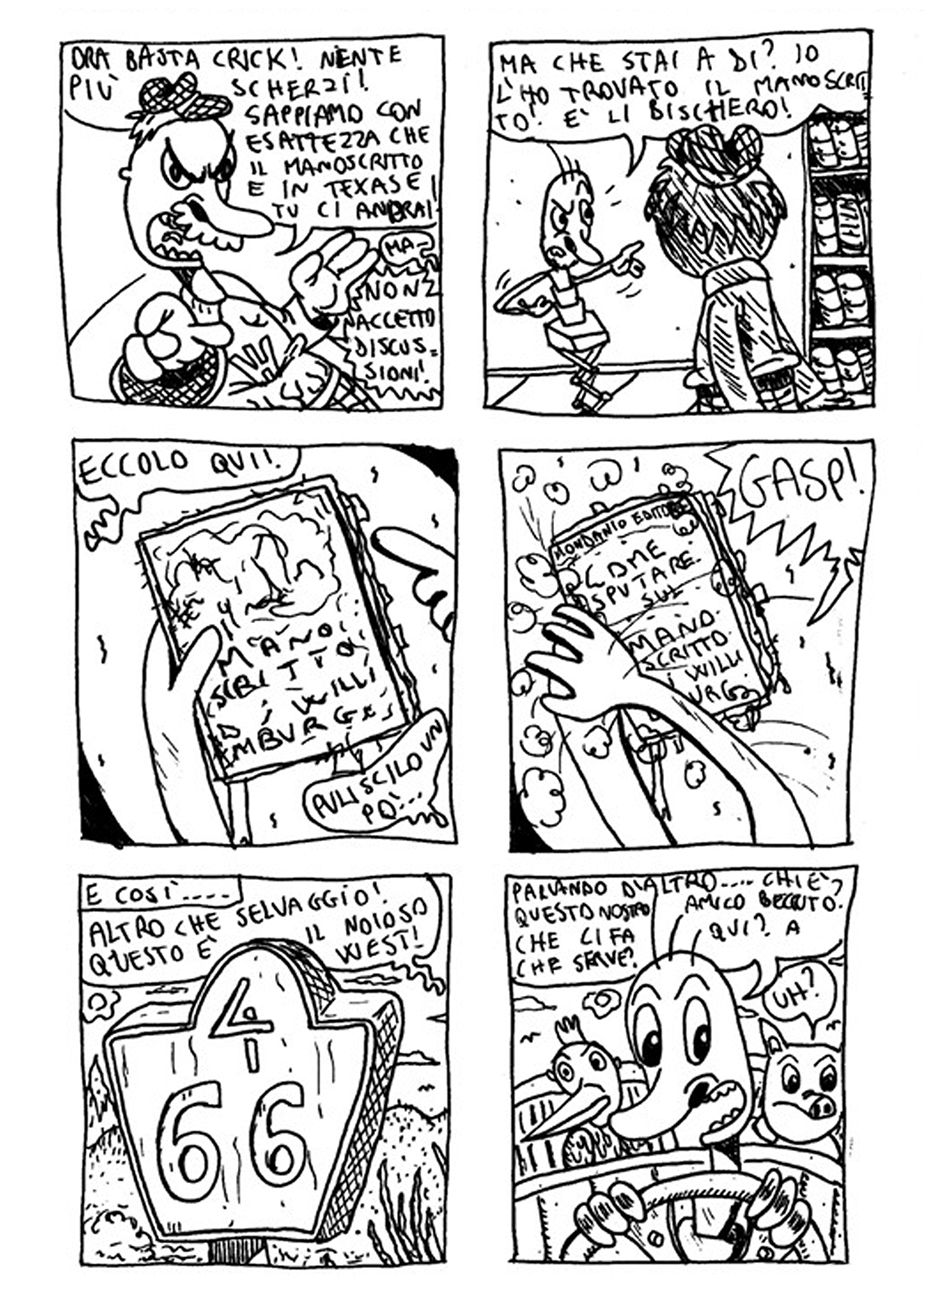 ORA BASTA CRICK! NIENTE
PIÙ SCHERZI!
SAPPIAMO CON
ESATTEZZA CHE
IL MANOSCRITTO
E IN TEXAS E
TU CI ANDRAI!
MA-
NON
ACCETTO
DISCUS-
SIONI!
MA CHE STAI A DI? IO
L'HO TROVATO IL MANOSCRIT
TO! E' LI BISCHERO!
ECCOLO QUI!
MANO
SCRITTO
DI WILLI
MBURG
PULISCILO UN
PO'...
GASP!
MONDANIO EDITORE
COME
SPUTARE
SUL
MANO
SCRITTO
I WILLI
URG
E COSÌ.....
ALTRO CHE SELVAGGIO!
QUESTO È IL NOIOSO
WEST!
66
PARLANDO D'ALTRO.... CHI E'
QUESTO NOSTRO AMICO BECCUTO?
CHE CI FA QUI? A
CHE SERVE?
UH?